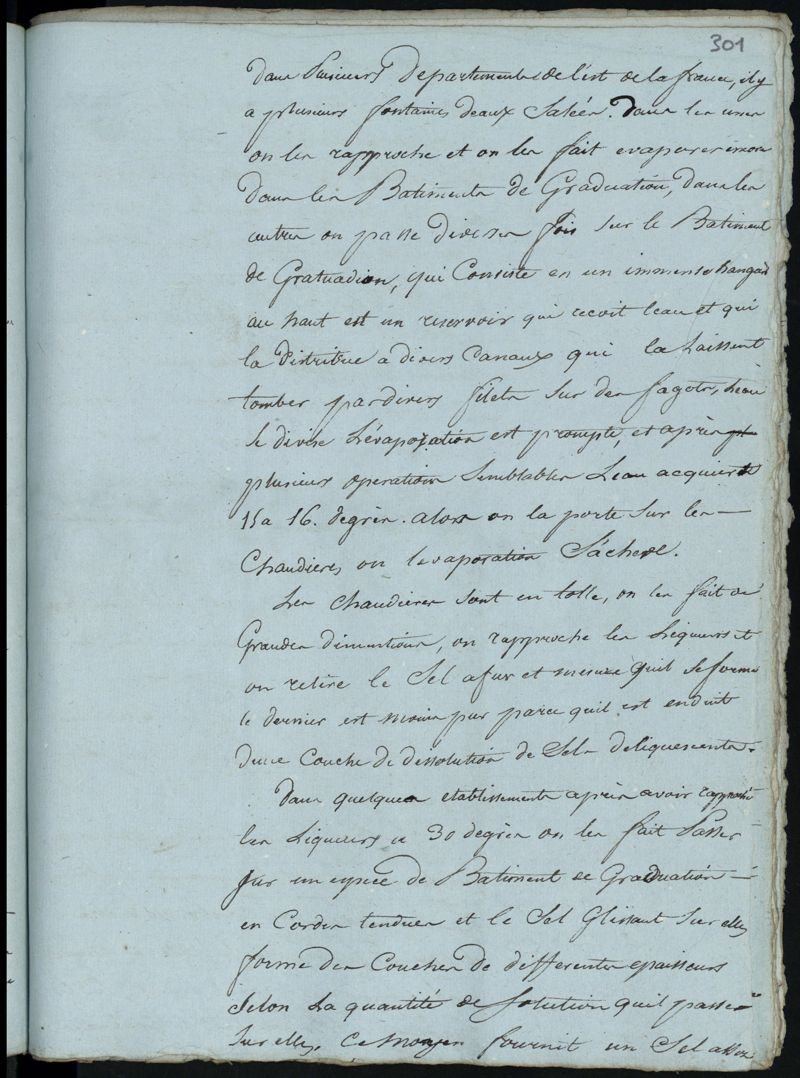 301
dans plusieurs departements de l'est de la france, il y
a plusieurs fontaines d'eaux Salées. dans les unes
on les rapproche et on les fait evaporer
dans les Batiments de Graduation, dans les
autres on passe diverses fois sur le Batiment
de Gratuadion, qui Consiste en un immense hangard
au haut est un reservoir qui recoit l'eau et qui
la distribue a divers Canaux qui la Laissent
tomber par divers filets sur des fagots, L'eau
se divise L'évaporation est prompte, et après
plusieurs operations Semblables L'eau acquiert
15 a 16. degrés. alors on la porte sur les
Chaudieres ou l'evaporation S'acheve.
Les Chaudieres sont en tolle, on les fait de
Grandes dimentions, on rapproche les Liqueurs et
on retire le Sel a fur et mesure qu'il se forme
le dernier est moins pur parce qu'il est enduit
d'une Couche de dissolution de Sels deliquescents.
dans quelques etablissements après avoir rapproché
les Liqueurs a 30 degrés on les fait Passer
sur un espece de Batiment de Graduation
en Cordes tendues et le Sel Glissant sur elles
forme des Couches de differentes epaisseurs
Selon La quantité de solution qu'il passe
sur elles. Ce moyen fournit un Sel assez